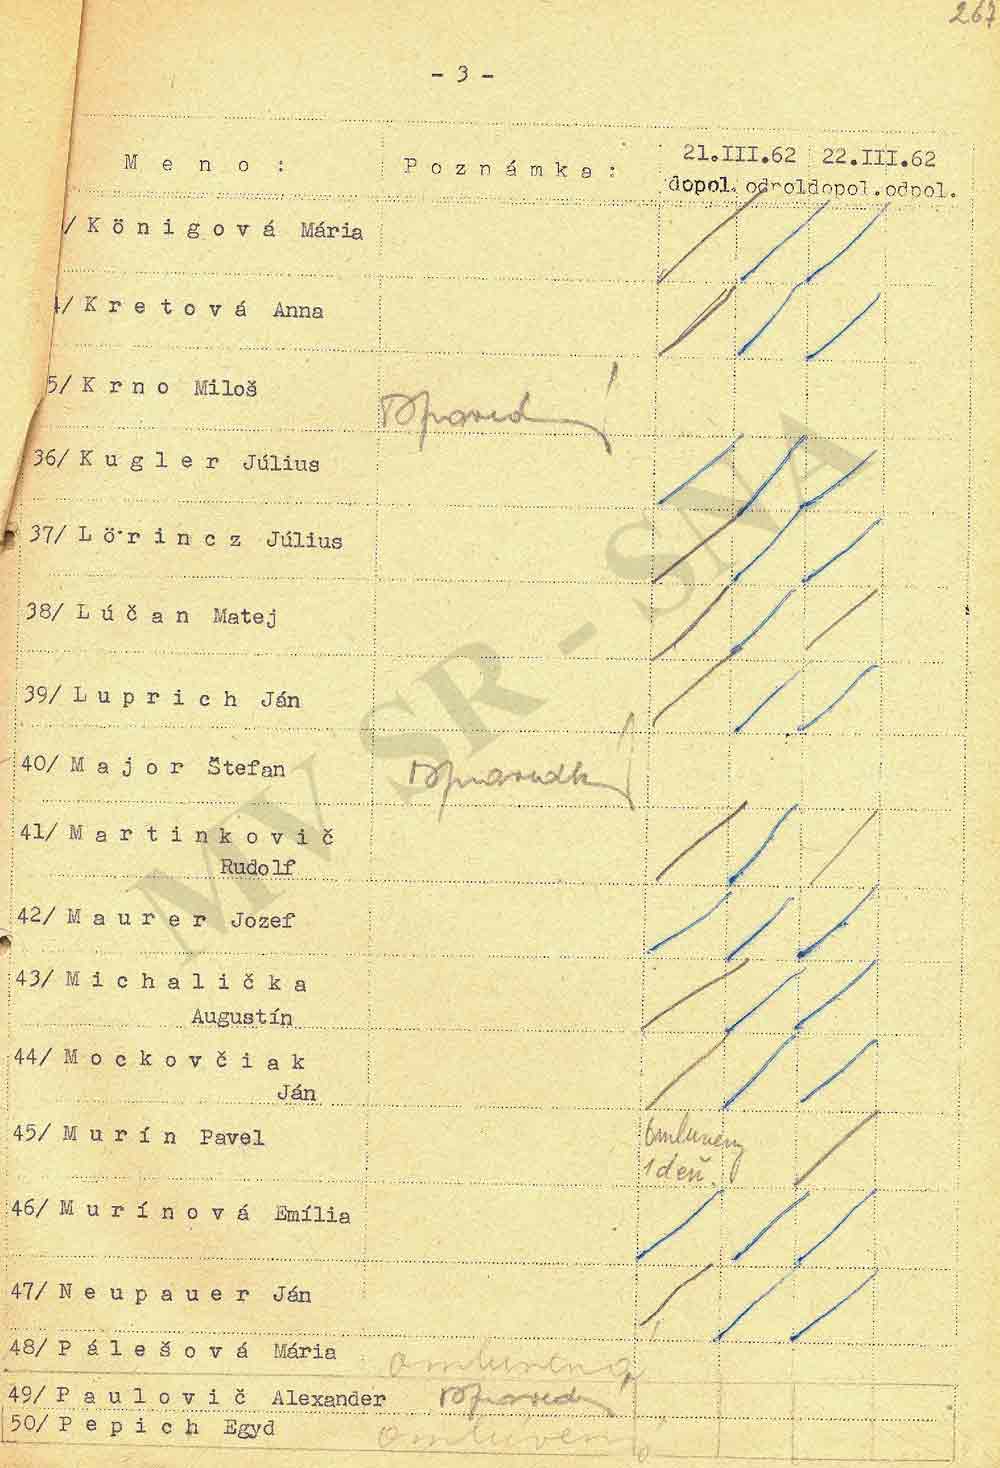 267
- 3 -
M e n o : P o z n á m k a : 21.III.62 22.III.62
dopol. odpol dopol. odpol.
/ K ö n i g o v á Mária
4/ K r e t o v á Anna
5/ K r n o Miloš
36/ K u g l e r Július
37/ L ö r i n c z Július
38/ L ú č a n Matej
39/ L u p r i c h Ján
40/ M a j o r Štefan
41/ M a r t i n k o v i č
Rudolf
42/ M a u r e r Jozef
43/ M i c h a l i č k a
Augustín
44/ M o c k o v č i a k
Ján
45/ M u r í n Pavel omluvený
1 deň.
46/ M u r í n o v á Emília
47/ N e u p a u e r Ján
48/ P á l e š o v á Mária omluvená
49/ P a u l o v i č Alexander
50/ P e p i c h Egyd omluvený
MV SR - SNA